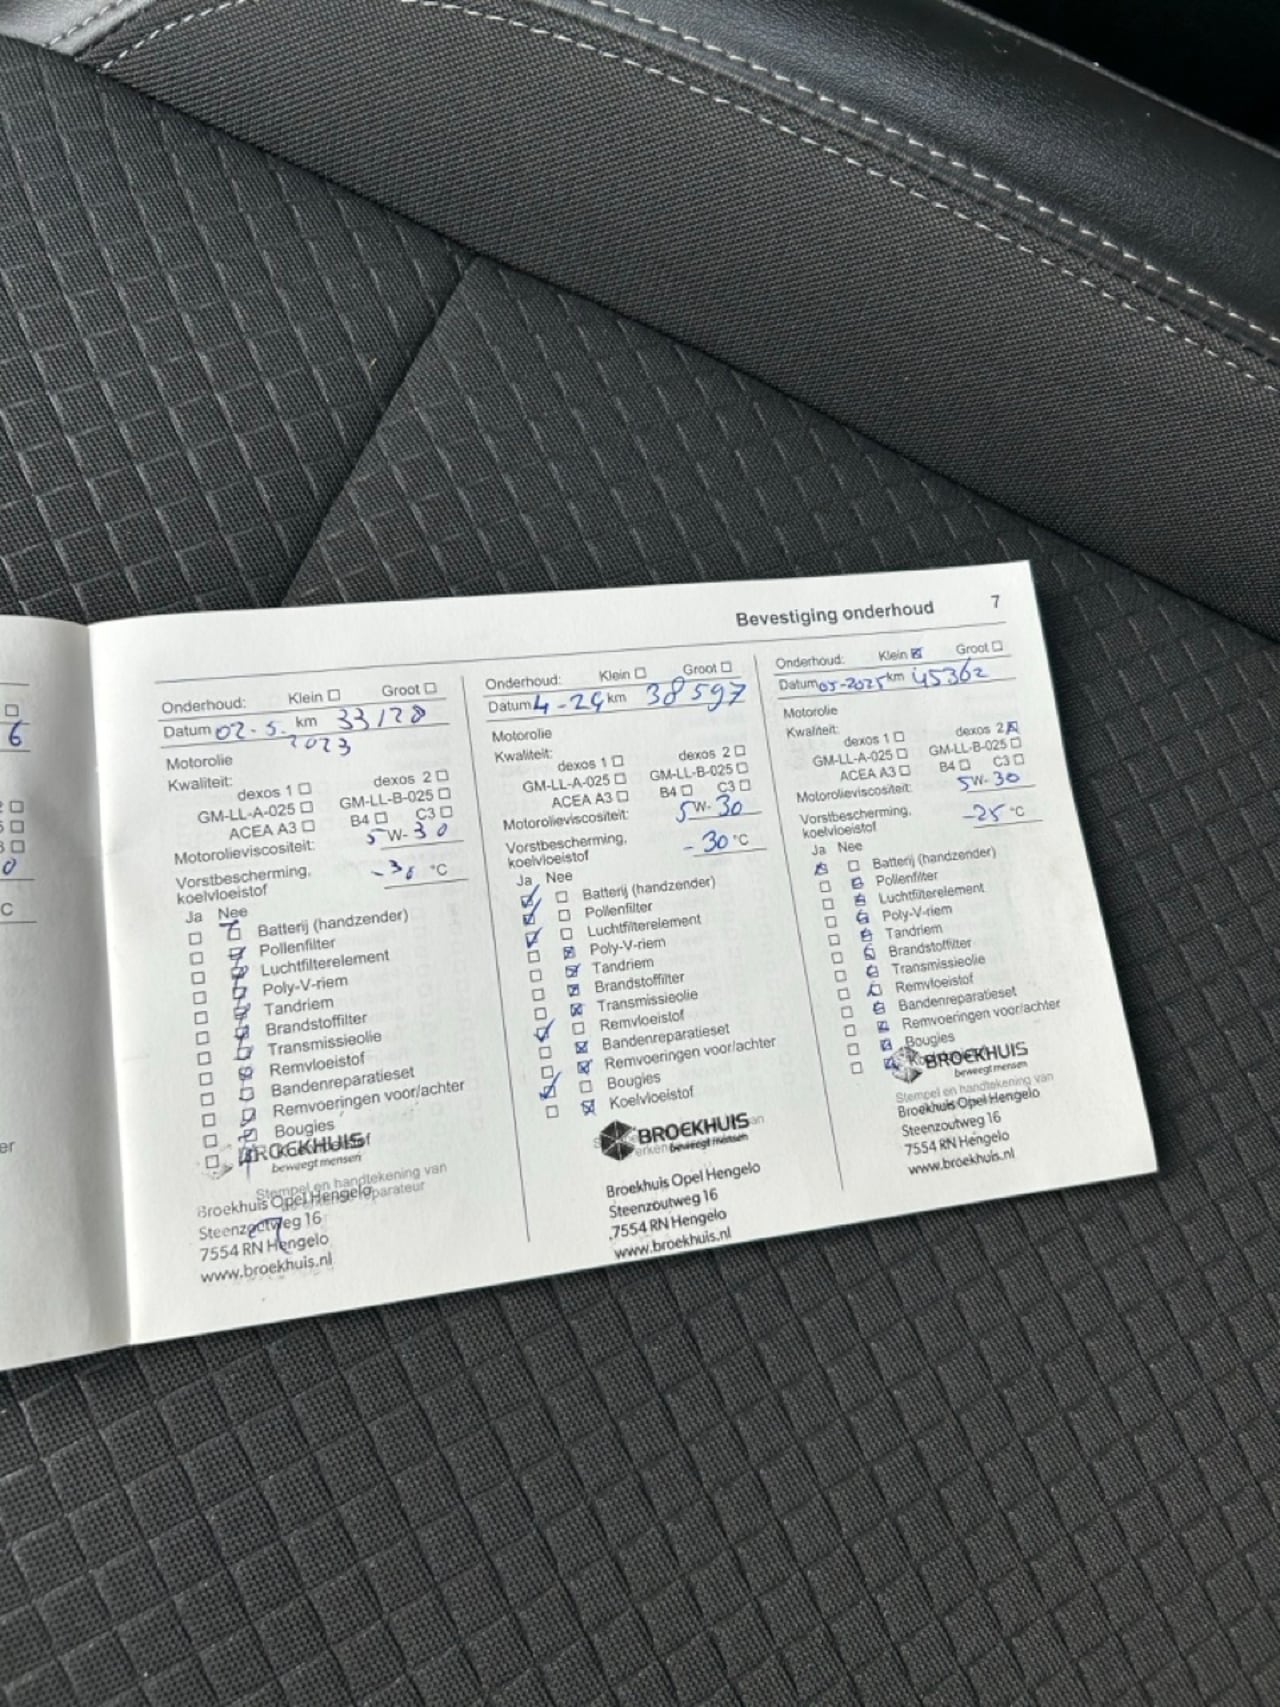 6
0
C
er
Bevestiging onderhoud 7
Onderhoud: Klein ☐ Groot ☐
Datum 02-5. km 33128
2023
Motorolie
Kwaliteit:
dexos 1 ☐ dexos 2 ☐
GM-LL-A-025 ☐ GM-LL-B-025 ☐
ACEA A3 ☐ B4 ☐ C3 ☐
Motorolieviscositeit: 5W-30
Vorstbescherming,
koelvloeistof °C
Ja Nee
☐ ☒ Batterij (handzender)
☐ ☒ Pollenfilter
☐ ☒ Luchtfilterelement
☐ ☒ Poly-V-riem
☐ ☒ Tandriem
☐ ☒ Brandstoffilter
☐ ☒ Transmissieolie
☐ ☒ Remvloeistof
☐ ☒ Bandenreparatieset
☐ ☒ Remvoeringen voor/achter
☐ ☒ Bougies
☐ ☒
BROEKHUIS
beweegt mensen
Stempel en handtekening van
Broekhuis Opel Hengelo
Steenzoutweg 16
7554 RN Hengelo
www.broekhuis.nl
Onderhoud: Klein ☐ Groot ☐
Datum 4-24 km 38597
Motorolie
Kwaliteit:
dexos 1 ☐ dexos 2 ☐
GM-LL-A-025 ☐ GM-LL-B-025 ☐
ACEA A3 ☐ B4 ☐ C3 ☐
Motorolieviscositeit: 5W-30
Vorstbescherming,
koelvloeistof -30 °C
Ja Nee
☑ ☐ Batterij (handzender)
☑ ☐ Pollenfilter
☑ ☐ Luchtfilterelement
☐ ☒ Poly-V-riem
☐ ☒ Tandriem
☐ ☒ Brandstoffilter
☐ ☒ Transmissieolie
☑ ☐ Remvloeistof
☐ ☒ Bandenreparatieset
☐ ☒ Remvoeringen voor/achter
☑ ☐ Bougies
☐ ☒ Koelvloeistof
BROEKHUIS
beweegt mensen
Broekhuis Opel Hengelo
Steenzoutweg 16
7554 RN Hengelo
www.broekhuis.nl
Onderhoud: Klein ☒ Groot ☐
Datum 05-2025 km 45362
Motorolie
Kwaliteit:
dexos 1 ☐ dexos 2 ☒
GM-LL-A-025 ☐ GM-LL-B-025 ☐
ACEA A3 ☐ B4 ☐ C3 ☐
Motorolieviscositeit: 5W-30
Vorstbescherming,
koelvloeistof -25 °C
Ja Nee
☒ ☐ Batterij (handzender)
☐ ☒ Pollenfilter
☐ ☒ Luchtfilterelement
☐ ☒ Poly-V-riem
☐ ☒ Tandriem
☐ ☒ Brandstoffilter
☐ ☒ Transmissieolie
☐ ☒ Remvloeistof
☐ ☒ Bandenreparatieset
☐ ☒ Remvoeringen voor/achter
☐ ☒ Bougies
☐ ☒
BROEKHUIS
beweegt mensen
Stempel en handtekening van
Broekhuis Opel Hengelo
Steenzoutweg 16
7554 RN Hengelo
www.broekhuis.nl